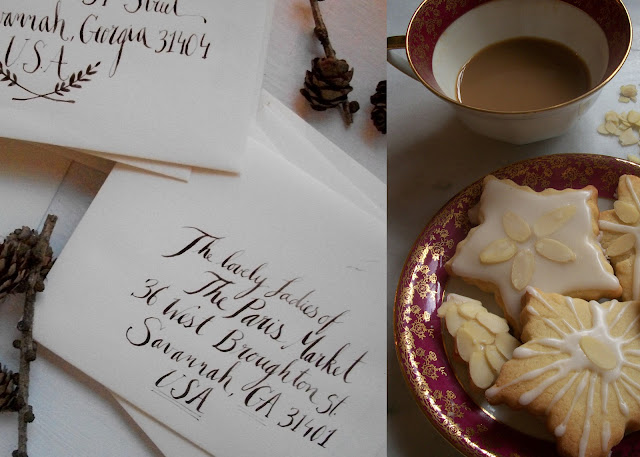 Savannah, Georgia 31404
USA
The lovely Ladies of
The Paris Market
36 West Broughton St.
Savannah, GA 31401
USA